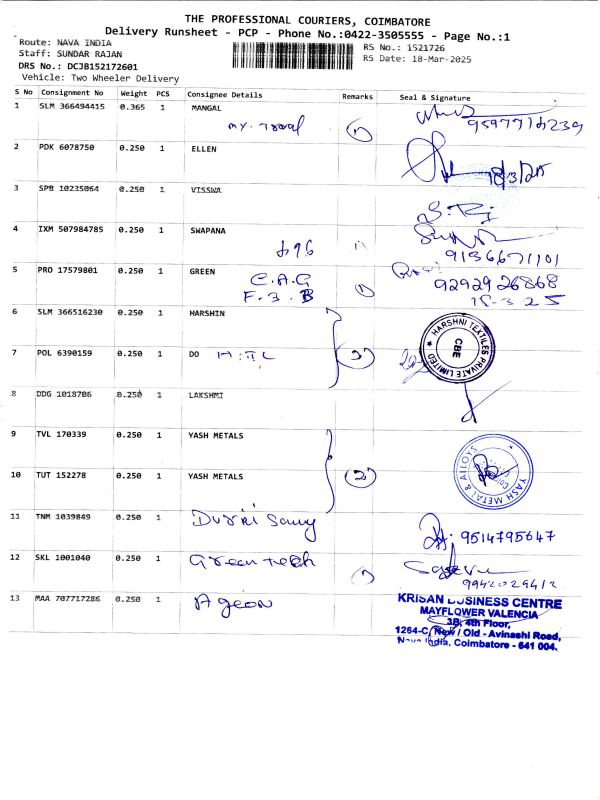 THE PROFESSIONAL COURIERS, COIMBATORE
Delivery Runsheet - PCP - Phone No.:0422-3505555 - Page No.:1
Route: NAVA INDIA RS No.: 1521726
Staff: SUNDAR RAJAN RS Date: 18-Mar-2025
DRS No.: DCJB152172601
Vehicle: Two Wheeler Delivery
S No Consignment No Weight PCS Consignee Details Remarks Seal & Signature
1 SLM 366494415 0.365 1 MANGAL
my. 1
2 PDK 6078750 0.250 1 ELLEN
18/3/25
3 SPB 10235064 0.250 1 VISSWA
4 IXM 507984785 0.250 1 SWAPANA
9136671101
5 PRO 17579801 0.250 1 GREEN 9292926868
C.A.G 1 18-3-25
F.3.B
6 SLM 366516230 0.250 1 HARSHIN
HARSHNI TEXTILES PRIVATE LIMITED
CBE
7 POL 6390159 0.250 1 DO H.T.L 2
8 DDG 1018706 0.250 1 LAKSHMI
9 TVL 170339 0.250 1 YASH METALS
YASH METAL & ALLOYS
10 TUT 152278 0.250 1 YASH METALS 2
11 TNM 1039849 0.250 1 9514795647
12 SKL 1001040 0.250 1 Green tech 1
9942029412
13 MAA 707717286 0.250 1 Ageon
KRISAN BUSINESS CENTRE
MAYFLOWER VALENCIA
3B, 4th Floor,
1264-C, New / Old - Avinashi Road,
Nava India, Coimbatore - 641 004.